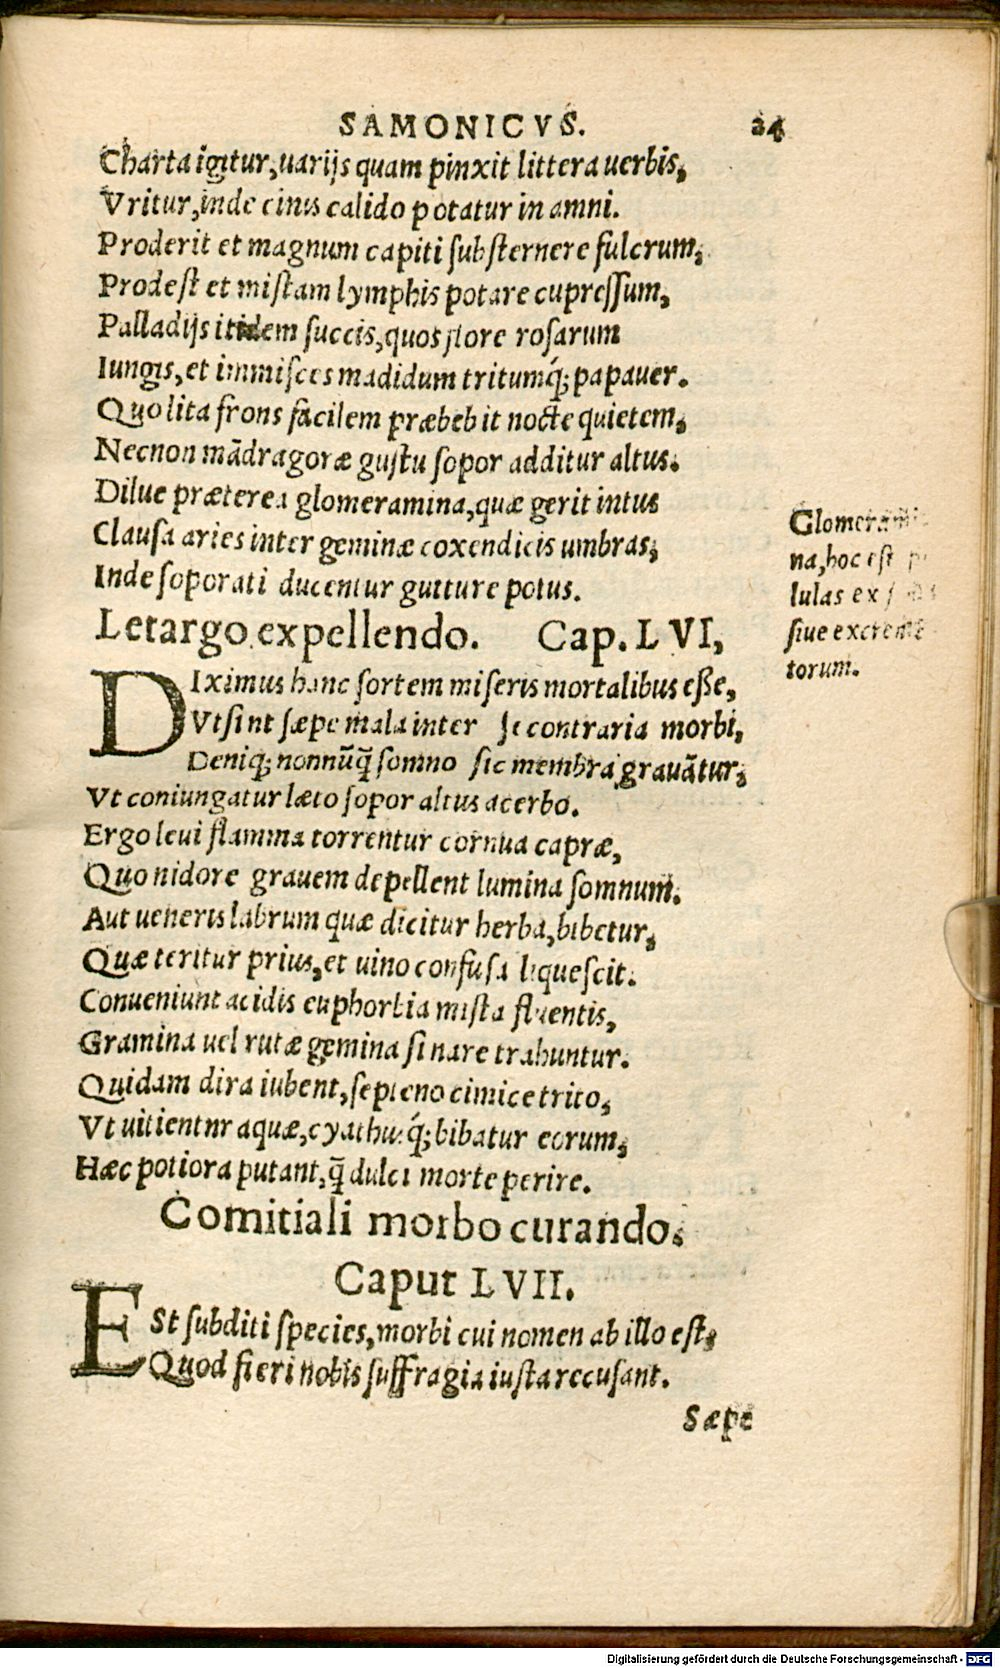 SAMONICVS. 24
Charta igitur, uarijs quam pinxit littera uerbis,
Vritur, inde cinis calido potatur in amni.
Proderit et magnum capiti substernere fulcrum,
Prodest et mistam lymphis potare cupressum,
Palladijs itidem succis, quos flore rosarum
Iungis, et immisces madidum tritumq́; papauer.
Quo lita frons facilem præbebit nocte quietem,
Necnon mādragoræ gustu sopor additur altus.
Dilue præterea glomeramina, quæ gerit intus
Clausa aries inter geminæ coxendicis umbras,
Inde soporati ducentur gutture potus.
Glomerami
na, hoc est
lulas ex
siue excremē
torum.
Letargo expellendo. Cap. LVI,
DIximus hanc sortem miseris mortalibus eße,
Vt sint sæpe mala inter se contraria morbi,
Deniq; nonnūq̄ somno sic membra grauātur,
Vt coniungatur læto sopor altus acerbo.
Ergo leui flamma torrentur cornua capræ,
Quo nidore grauem depellent lumina somnum.
Aut ueneris labrum quæ dicitur herba, bibetur,
Quæ teritur prius, et uino confusa liquescit.
Conueniunt acidis euphorbia mista fluentis,
Gramina uel rutæ gemina si nare trahuntur.
Quidam dira iubent, septeno cimice trito,
Vt uitientnr aquæ, cyathusq́; bibatur eorum,
Hæc potiora putant, q̄ dulci morte perire.
Comitiali morbo curando.
Caput LVII.
ESt subditi species, morbi cui nomen ab illo est,
Quod fieri nobis suffragia iusta recusant.
Sæpe
Digitalisierung gefördert durch die Deutsche Forschungsgemeinschaft - DFG